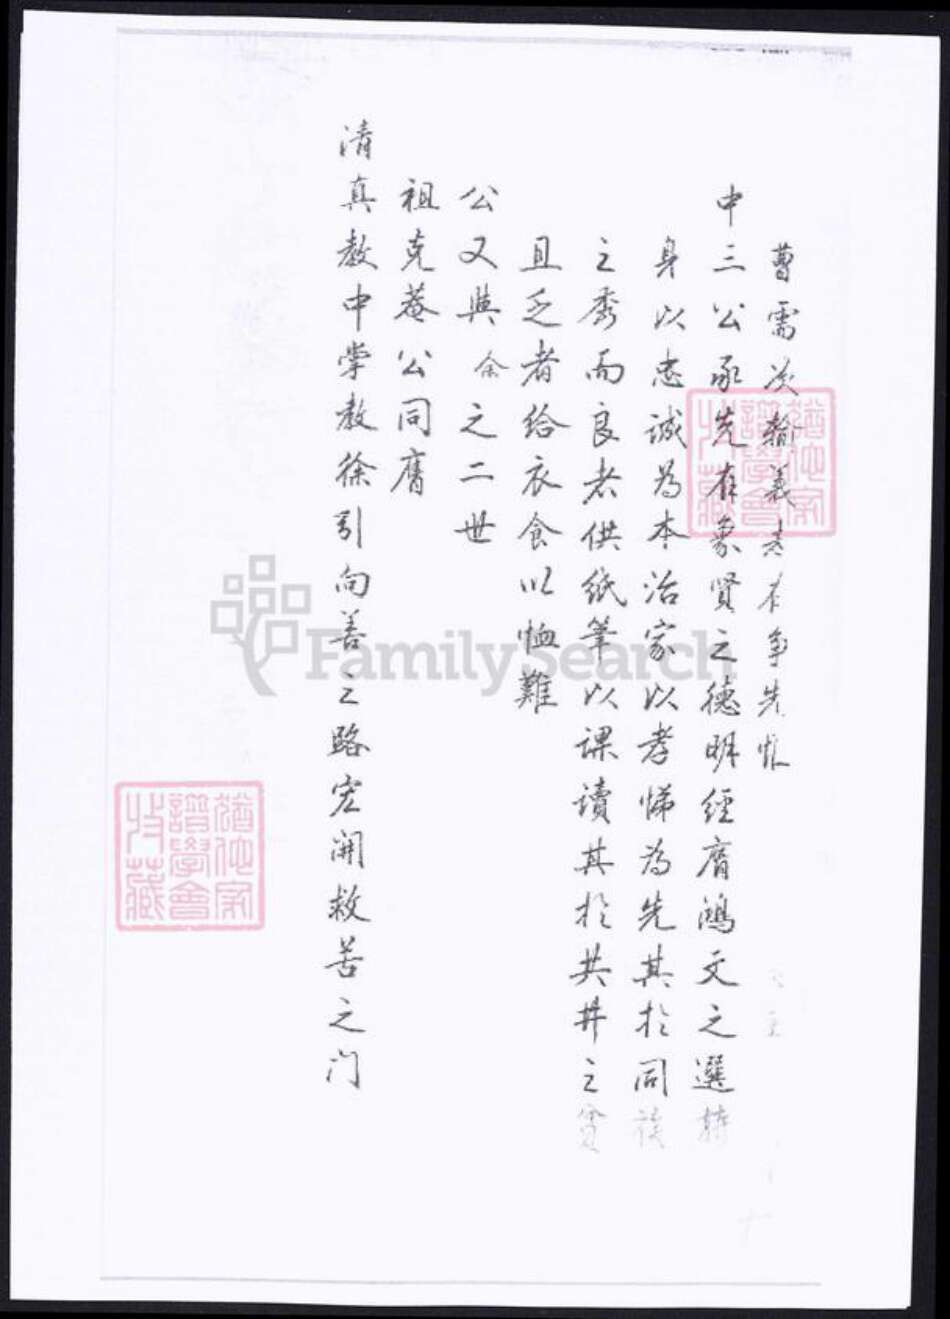 曹需次輸義者有爭先恨
中三公承先有象賢之德明經膺鴻文之選
身以忠誠為本治家以孝悌為先其於同族
之秀而良者供紙筆以課讀其於共井之貧
且乏者給衣食以恤難
公又與余之二世
祖克菴公同膺
清真教中掌教徐引向善之路宏開救苦之门
譜學會
收藏
譜學會
收藏
FamilySearch